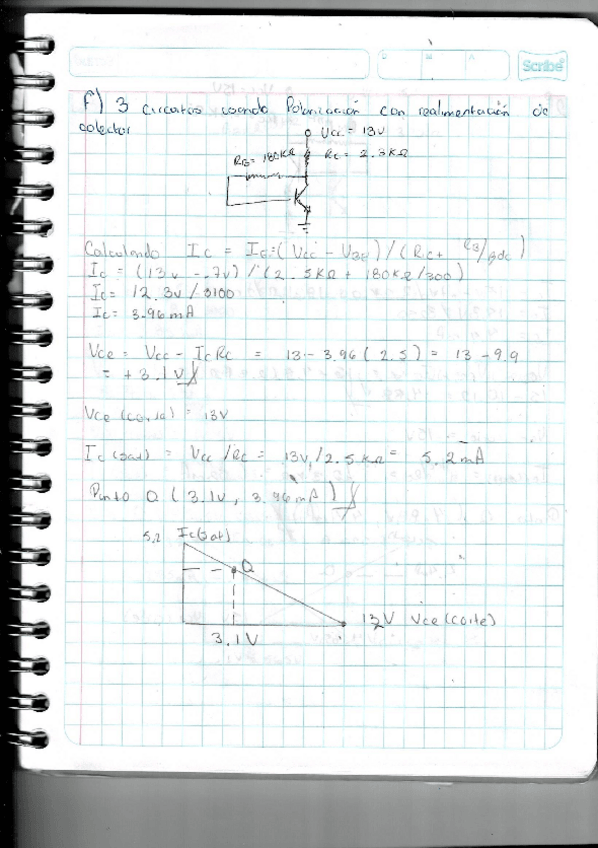 D M A
Scribe
f) 3 Circuitos usando Polarización con realimentación de
colector
Vcc = 13V
RB = 180KΩ
Rc = 2.3KΩ
Calculando Ic = Ic=(Vcc - VBE) / (Rc + RB/βdc)
Ic = (13v - .7v) / (2.5KΩ + 180KΩ/300)
Ic= 12.3v / 3100
Ic= 3.96mA
Vce = Vcc - IcRc = 13 - 3.96(2.5) = 13 - 9.9
= +3.1v
Vce (corte) = 13v
Ic (sat) = Vcc / Rc = 13v / 2.5KΩ = 5.2mA
Punto Q (3.1v, 3.96mA)
5.2 Ic(sat)
Q
13V Vce(corte)
3.1V